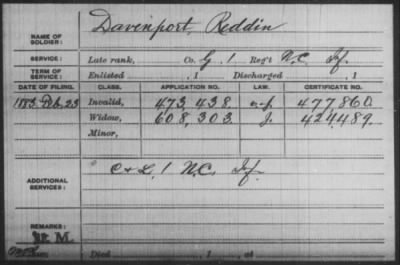 Davenport, Reddin
NAME OF SOLDIER:
SERVICE: Late rank, Co. G, 1 Reg't N.C. Inf.
TERM OF SERVICE: Enlisted , 1 Discharged , 1
DATE OF FILING. CLASS. APPLICATION NO. LAW. CERTIFICATE NO.
1883 Feb. 23 Invalid, 473,438. 477,860.
Widow, 608,303. J. 424,489.
Minor,
ADDITIONAL SERVICES: C & L, 1 N.C. Inf.
REMARKS:
Died , 1 , at